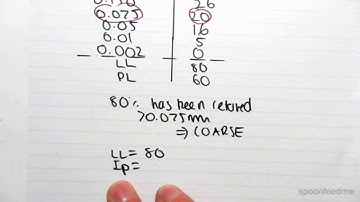 0.150 26
0.075 20
0.05 16
0.01 5
0.002 0
LL 80
PL 60
80% has been retured
>0.075mm
⇒ COARSE
LL = 80
Ip =
spoonfeedme